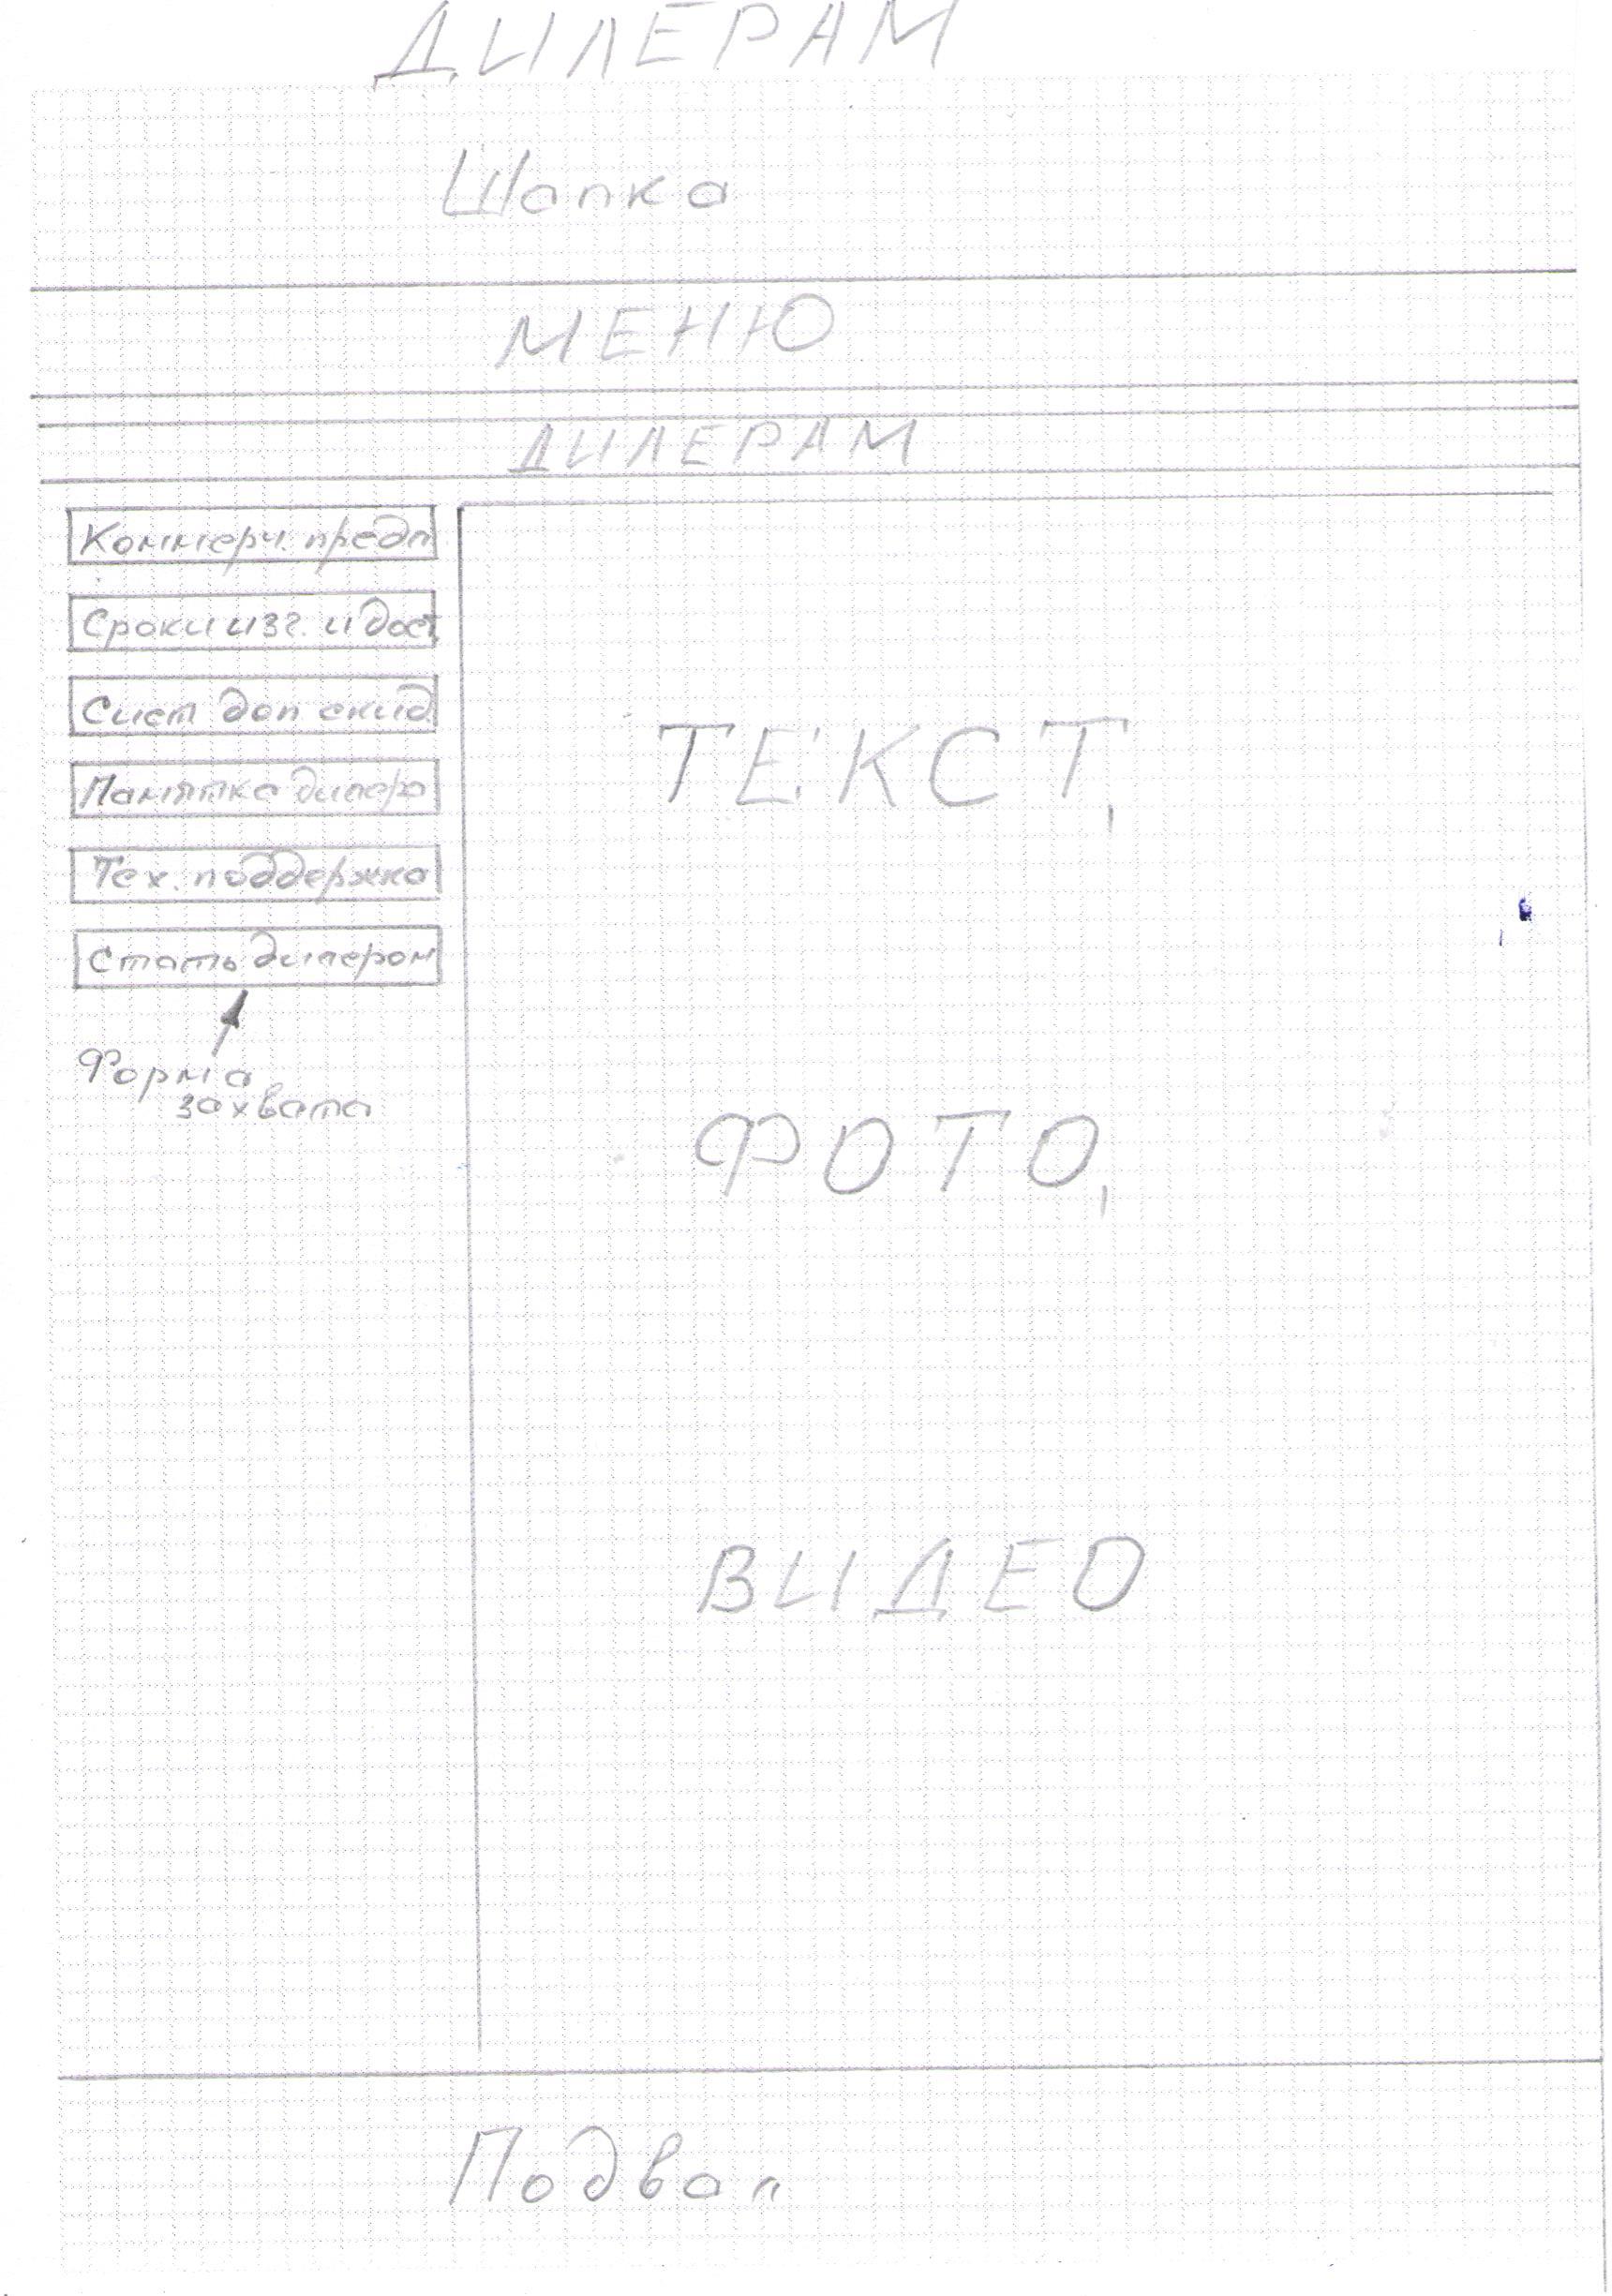 ДИЛЕРАМ
Шапка
МЕНЮ
ДИЛЕРАМ
Коммерч. предл
Сроки изг. и дост
Сист доп скид.
Памятка дилера
Тех. поддержка
Стать дилером
Форма
захвата
ТЕКСТ,
ФОТО,
ВИДЕО
Подвал